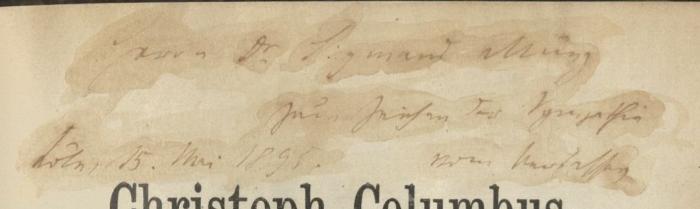 Herrn Dr. Sigmund Münz
zum Zeichen der Sympathie
Köln, 15. Mai 1895. vom Verfasser
Christoph Columbus